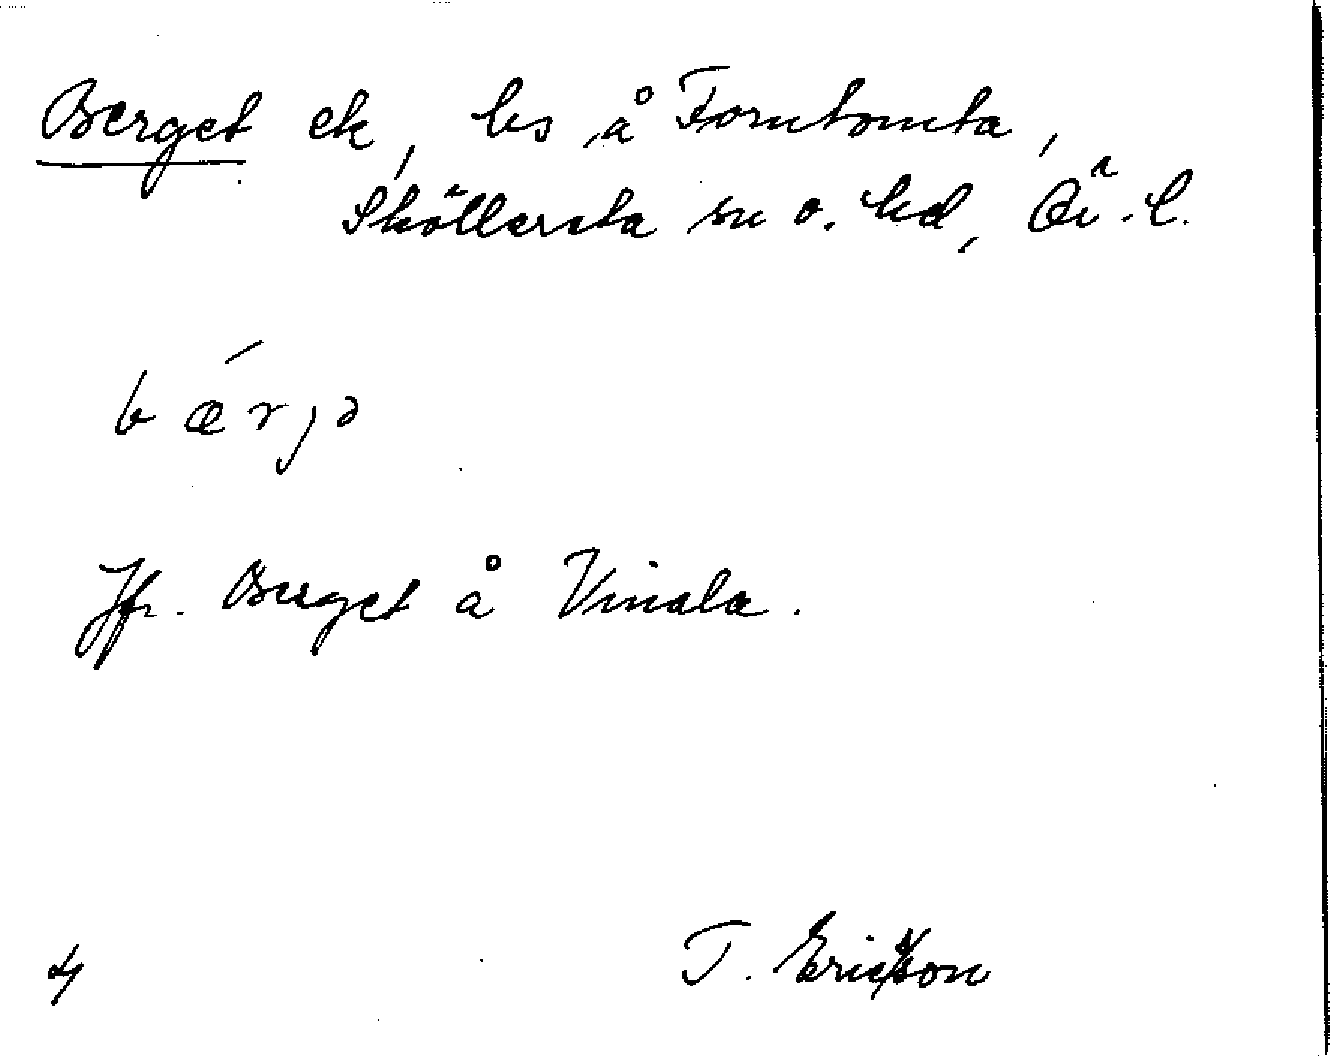 Berget ek, ls å Torntomta,
Sköllersta sn o. hd, Ör. l.
bǽrjə
Jfr. Berget å Vinala.
T. Ericsson